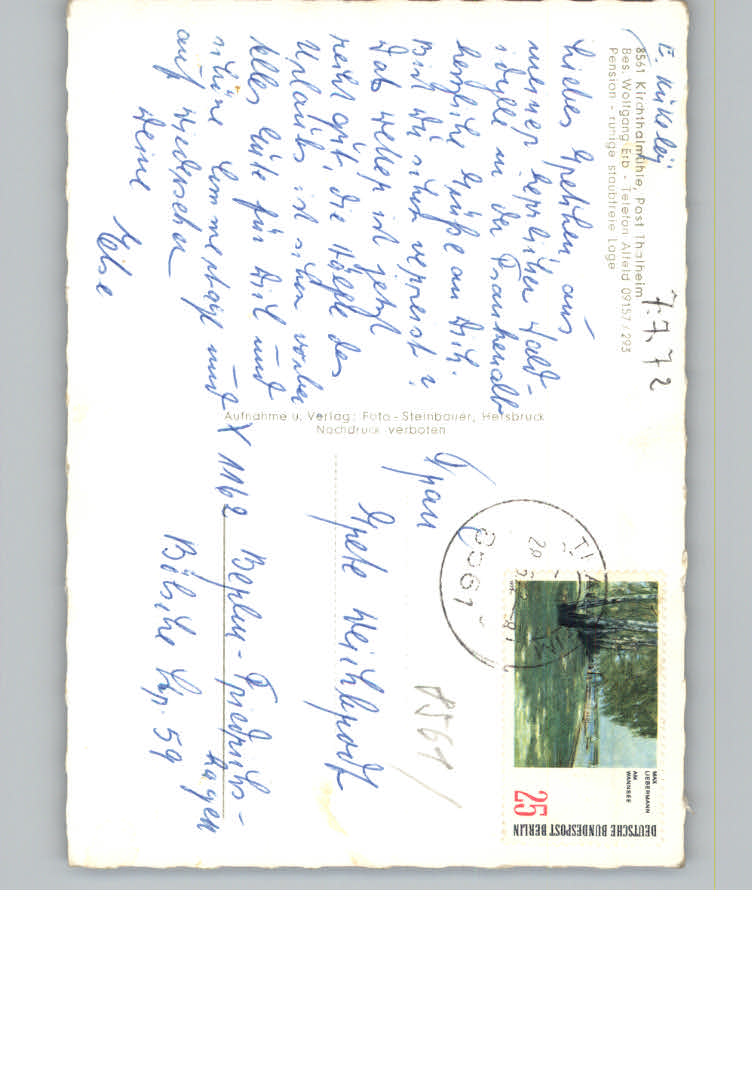 8561 Kirchthalmühle, Post Thalheim
Bes. Wolfgang Erb - Telefon Alfeld 09157 / 293
Pension - ruhige staubfreie Lage
7.7.72
Liebes Gretchen aus
meiner herrlichen Wald-
idylle in der Frankenalb
herzliche Grüße an Dich.
Bist Du schon verreist?
Das Wetter ist jetzt
recht gut, die Hälfte des
Urlaubs ist schon vorbei
Alles Gute für Dich und
schöne Sommertage und
auf Wiedersehen
Deine Else
Aufnahme u. Verlag: Foto - Steinbauer, Hersbruck
Nachdruck verboten
Frau
Grete Weichbrodt
X 1162 Berlin-Friedrichs-
hagen
Bölsche Str. 59
8561
8561
THALHEIM
DEUTSCHE BUNDESPOST BERLIN
25
MAX
LIEBERMANN
AM
WANNSEE